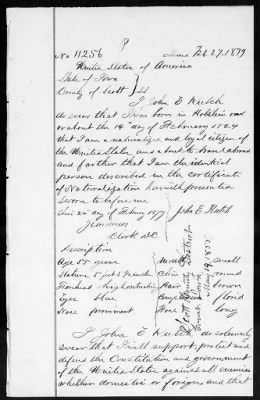 No 11256
Feb. 27, 1879
United States of America
State of Iowa
County of Scott } SS
I John E
swear that I was born in Holstein on
or about the 14 day of February 1824
that I am a naturalized and loyal citizen of
the United States and about to travel abroad
and farther that I am the identical
person described in the certificate
of Naturalization herewith presented
Sworn to before me
this 24 day of February 1879
John E
Clerk DC
Description
Age 55 years
Mouth small
Stature 5 feet
Chin round
Forehead high
Hair brown
Eyes blue
florid
Nose prominent
Face long
Scott County District
Court Iowa
I John E do solemnly
swear that I will support, protect and
defend the Constitution and government
of the United States against all enemies
whether domestic or foreign and that